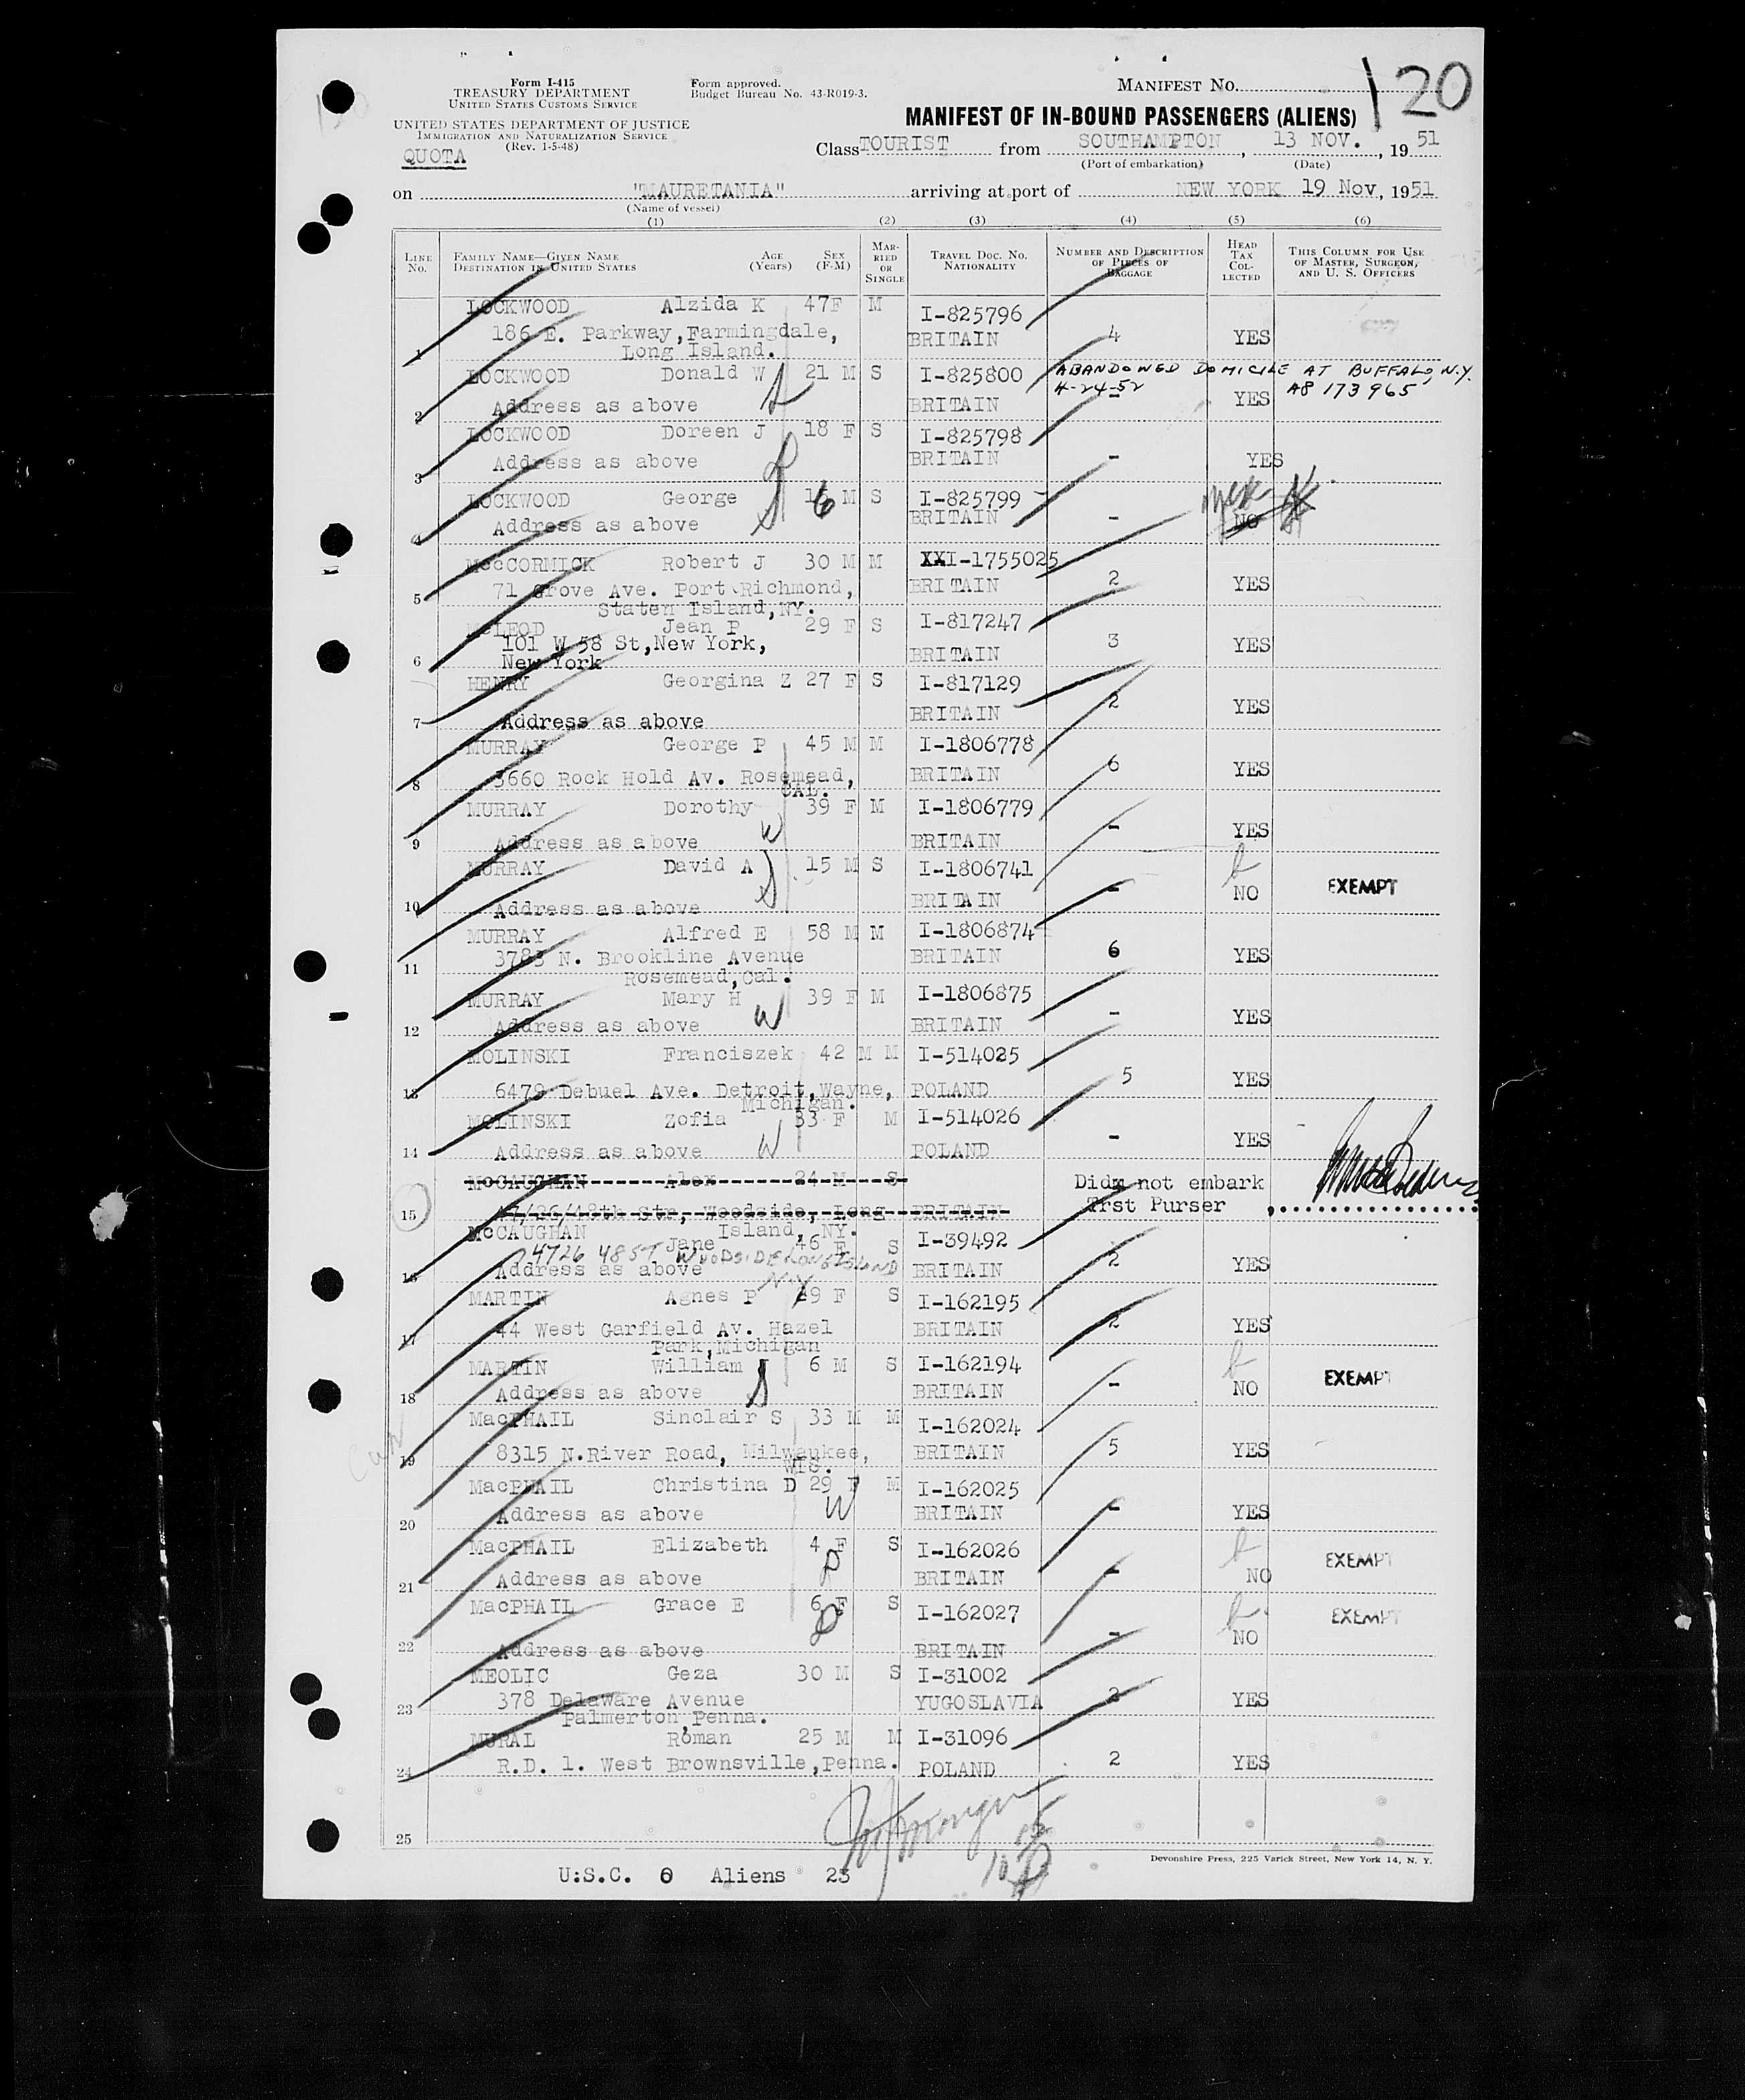 Form I-415
TREASURY DEPARTMENT
UNITED STATES CUSTOMS SERVICE
UNITED STATES DEPARTMENT OF JUSTICE
IMMIGRATION AND NATURALIZATION SERVICE
(Rev. 1-5-48)
QUOTA
Form approved.
Budget Bureau No. 43-R019-3.
MANIFEST No. 120
MANIFEST OF IN-BOUND PASSENGERS (ALIENS)
Class TOURIST from SOUTHAMPTON, 13 NOV., 1951
(Port of embarkation) (Date)
on "MAURETANIA" arriving at port of NEW YORK 19 Nov, 1951
(Name of vessel)
(1) (2) (3) (4) (5) (6)
LINE No. FAMILY NAME—GIVEN NAME DESTINATION IN UNITED STATES AGE (Years) SEX (F-M) MARRIED OR SINGLE TRAVEL DOC. NO. NATIONALITY NUMBER AND DESCRIPTION OF PIECES OF BAGGAGE HEAD TAX COLLECTED THIS COLUMN FOR USE OF MASTER, SURGEON, AND U. S. OFFICERS
LOCKWOOD Alzida K 47F M I-825796
186 E. Parkway, Farmingdale, BRITAIN 4 YES
1 Long Island.
LOCKWOOD Donald W 21 M S I-825800 ABANDONED DOMICILE AT BUFFALO, N.Y.
4-24-52 A8 173 965
2 Address as above BRITAIN - YES
LOCKWOOD Doreen J 18 F S I-825798
3 Address as above BRITAIN - YES
LOCKWOOD George 16 M S I-825799
4 Address as above BRITAIN - NO
McCORMICK Robert J 30 M M XXI-1755025
5 71 Grove Ave. Port Richmond, BRITAIN 2 YES
Staten Island, NY.
McLEOD Jean P 29 F S I-817247
101 W 58 St, New York, BRITAIN 3 YES
6 New York
HENRY Georgina Z 27 F S I-817129
7 Address as above BRITAIN 2 YES
MURRAY George P 45 M M I-1806778
8 3660 Rock Hold Av. Rosemead, BRITAIN 6 YES
CAL.
MURRAY Dorothy 39 F M I-1806779
9 Address as above W BRITAIN - YES
MURRAY David A 15 M S I-1806741
10 Address as above S BRITAIN - NO EXEMPT
MURRAY Alfred E 58 M M I-1806874
11 3783 N. Brookline Avenue BRITAIN 6 YES
Rosemead, Cal.
MURRAY Mary H 39 F M I-1806875
12 Address as above W BRITAIN - YES
MOLINSKI Franciszek 42 M M I-514025
13 6479 Debuel Ave. Detroit, Wayne, POLAND 5 YES
Michigan.
MOLINSKI Zofia 33 F M I-514026
14 Address as above W POLAND - YES
McCAUGHAN Alex 24 M S Didn not embark
15 47/26/48th Str, Woodside, Long BRITAIN Trst Purser
Island, NY.
McCAUGHAN Jane 46 F S I-39492
4726 48 ST WOODSIDE LONG ISLAND N.Y
16 Address as above BRITAIN 2 YES
MARTIN Agnes P 29 F S I-162195
17 44 West Garfield Av. Hazel BRITAIN 2 YES
Park, Michigan
MARTIN William J 6 M S I-162194
18 Address as above S BRITAIN - NO EXEMPT
MacPHAIL Sinclair S 33 M M I-162024
19 8315 N.River Road, Milwaukee, BRITAIN 5 YES
WIS.
MacPHAIL Christina D 29 F M I-162025
20 Address as above W BRITAIN - YES
MacPHAIL Elizabeth 4 F S I-162026
21 Address as above D BRITAIN - NO EXEMPT
MacPHAIL Grace E 6 F S I-162027
22 Address as above D BRITAIN - NO EXEMPT
MEOLIC Geza 30 M S I-31002
23 378 Delaware Avenue YUGOSLAVIA 2 YES
Palmerton, Penna.
MURAL Roman 25 M M I-31096
24 R.D. 1. West Brownsville, Penna. POLAND 2 YES
25
Devonshire Press, 225 Varick Street, New York 14, N. Y.
U:S.C. 0 Aliens 23